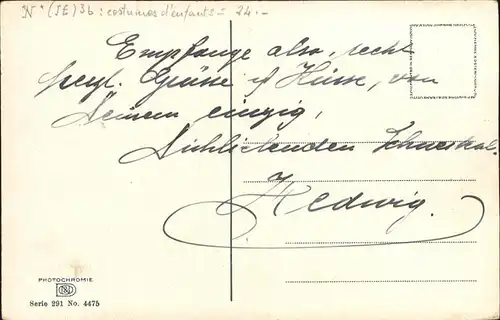 N° (JE) 36 : costumes d'enfants = 24.-
Empfange also, recht
herzl. Grüsse & Küsse, von
Deinem einzig,
Dichliebenden
Hedwig.
PHOTOCHROMIE
Serie 291 No. 4475